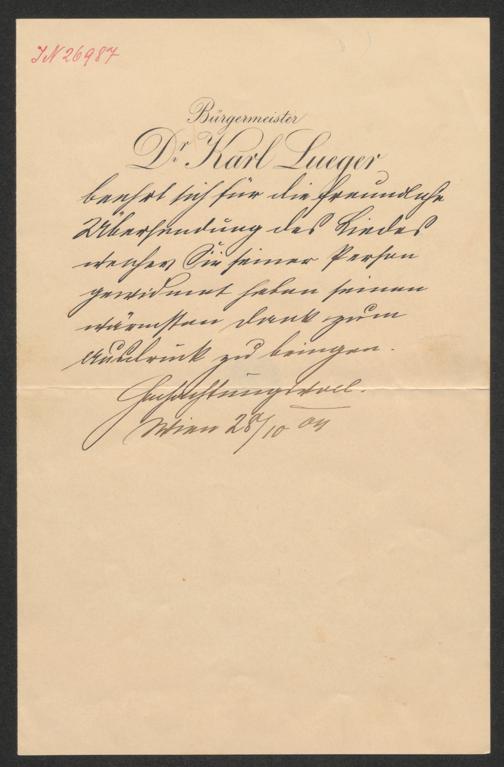 IN 26987
Bürgermeister
Dr. Karl Lueger
beehrt sich für die freundliche
Übersendung des Liedes
welches Sie seiner Person
gewidmet haben seinen
wärmsten Dank zum
Ausdruck zu bringen.
Hochachtungsvoll.
Wien 28/10